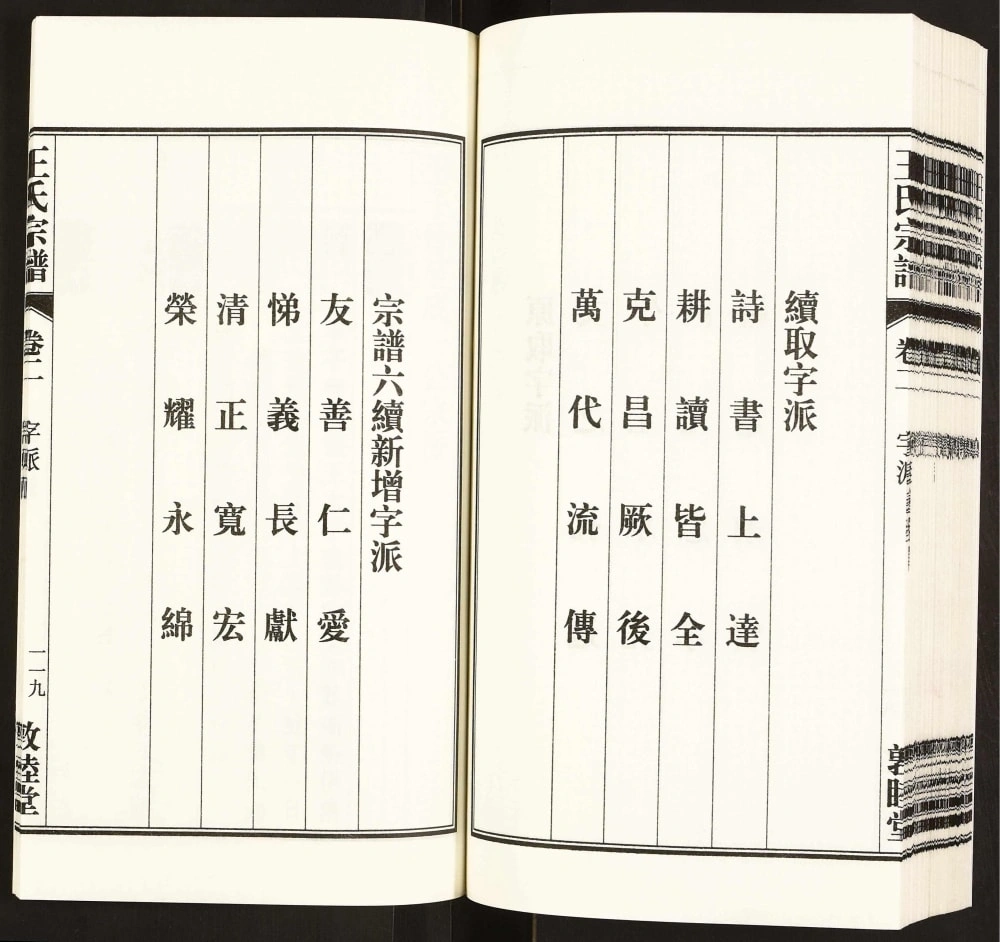 續取字派
詩書上達
耕讀皆全
克昌厥後
萬代流傳
宗譜六續新增字派
友善仁愛
悌義長獻
清正寬宏
榮耀永綿
王氏宗譜
卷二
字派
二一九
敦睦堂